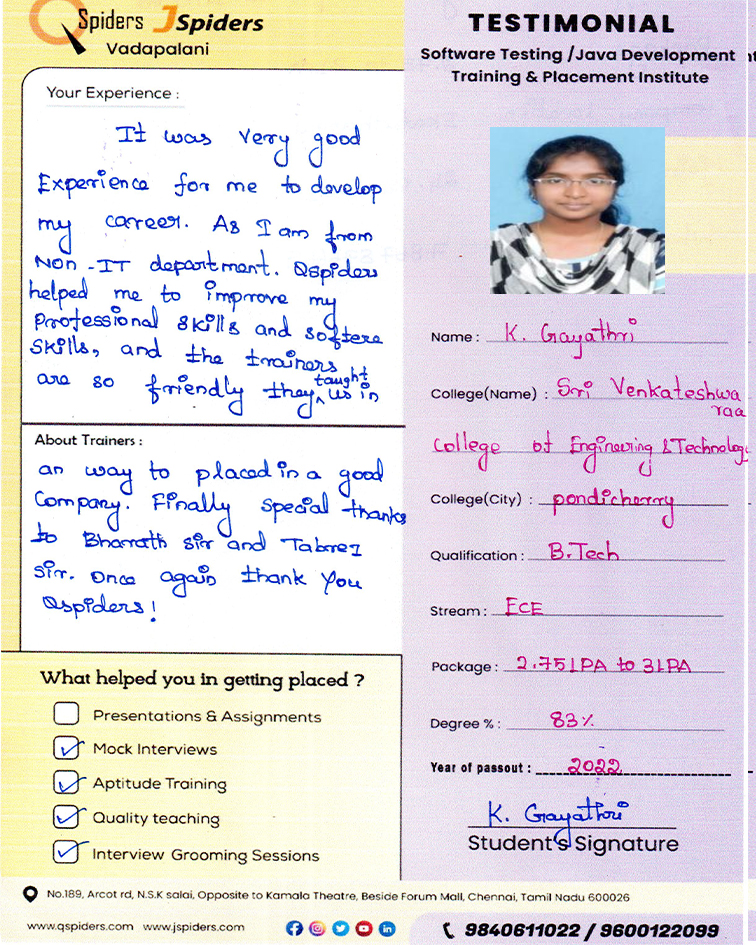 Spiders JSpiders
Vadapalani
Your Experience :
It was very good
Experience for me to develop
my career. As I am from
Non-IT department. Qspiders
helped me to improve my
Professional skills and softere
skills, and the trainers
are so friendly they taught us in
About Trainers :
an way to placed in a good
Company. Finally special thanks
to Bharath sir and Tabrez
sir. Once again thank you
Qspiders!
What helped you in getting placed ?
Presentations & Assignments
Mock Interviews
Aptitude Training
Quality teaching
Interview Grooming Sessions
TESTIMONIAL
Software Testing /Java Development
Training & Placement Institute
Name : K. Gayathri
College(Name) : Sri Venkateshwa
raa
College of Engineering & Technology
College(City) : pondicherry
Qualification : B.Tech
Stream : ECE
Package : 2.75 LPA to 3 LPA
Degree % : 83%
Year of passout : 2022
K. Gayathri
Student's Signature
No.189, Arcot rd, N.S.K salai, Opposite to Kamala Theatre, Beside Forum Mall, Chennai, Tamil Nadu 600026
www.qspiders.com www.jspiders.com
9840611022 / 9600122099